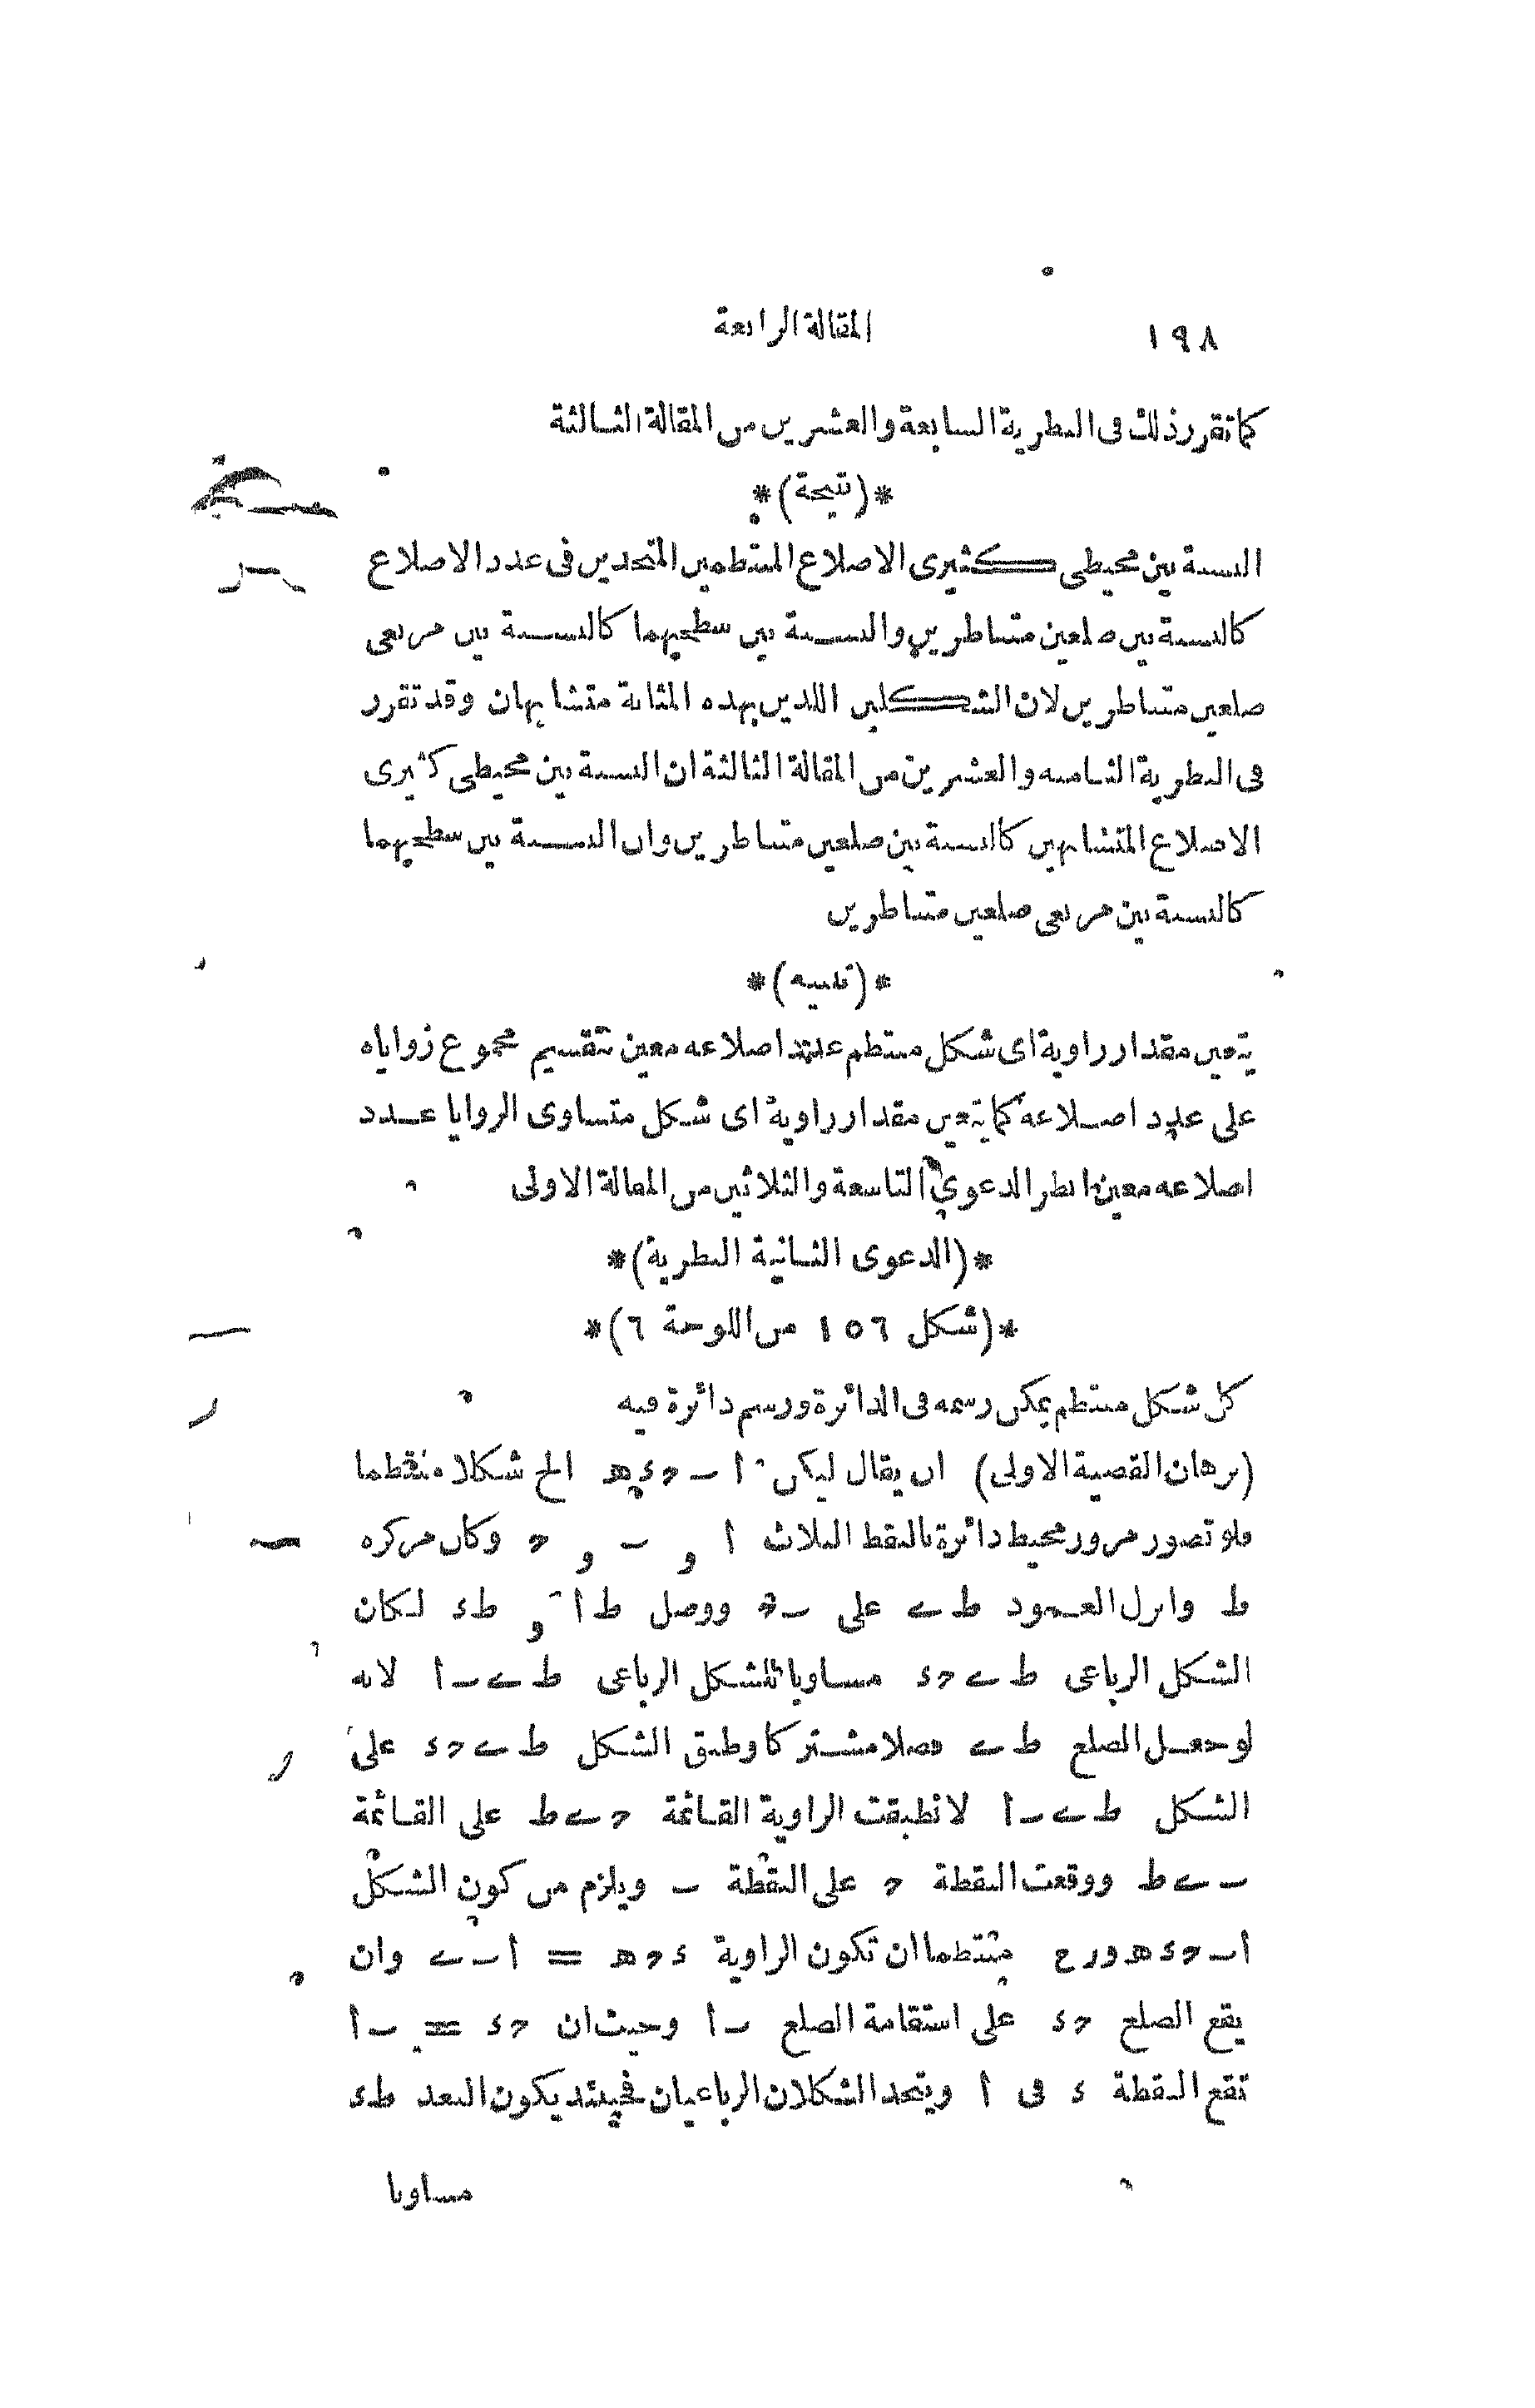 ١٩٨ المقالة الرابعة
كما تقرر ذلك فى النظرية السابعة والعشرين من المقالة الثالثة
*(نتيجة)*
النسبة بين محيطى كثيرى الاضلاع المنتظمين المتحدين فى عدد الاضلاع
كالنسبة بين ضلعين متناظرين والنسبة بين سطحيهما كالنسبة بين مربعى
ضلعين متناظرين لان الشكلين اللذين بهذه المثابة متشابهان وقد تقرر
فى النظرية الثامنه والعشرين من المقالة الثالثة ان النسبة بين محيطى كثيرى
الاضلاع المتشابهين كالنسبة بين ضلعين متناظرين وان النسبة بين سطحيهما
كالنسبة بين مربعى ضلعين متناظرين
*(تنبيه)*
يتعين مقدار زاوية اى شكل منتظم عدد اضلاعه معين بتقسيم مجموع زواياه
على عدد اضلاعه كما يتعين مقدار زاوية اى شكل متساوى الزوايا عدد
اضلاعه معين انظر الدعوى التاسعة والثلاثين من المقالة الاولى
*(الدعوى الثانية النظرية)*
*(شكل ١٥٦ من اللوحة ٦)*
كل شكل منتظم يمكن رسمه فى الدائرة ورسم دائرة فيه
(برهان القضية الاولى) ان يقال ليكن ا ب ح د ه الخ شكلا منتظما
فلو تصور مرور محيط دائرة بالنقط الثلاث ا و ب و ح وكان مركزه
ط وانزل العمود ط ے على ب ح ووصل ط ا و ط د لكان
الشكل الرباعى ط ے ح د مساويا للشكل الرباعى ط ے ب ا لانه
لو جعل الضلع ط ے فصلا مشتركا وطبق الشكل ط ے ح د على
الشكل ط ے ب ا لانطبقت الزاوية القائمة ح ے ط على القائمة
ب ے ط ووقعت النقطة ح على النقطة ب ويلزم من كون الشكل
ا ب ح د ه و ر ح منتظما ان تكون الزاوية د ح ه = ا ب ے وان
يقع الضلع ح د على استقامة الضلع ب ا وحيث ان ح د = ب ا
تقع النقطة د فى ا ويتحد الشكلان الرباعيان فحينئذ يكون البعد ط د
مساويا